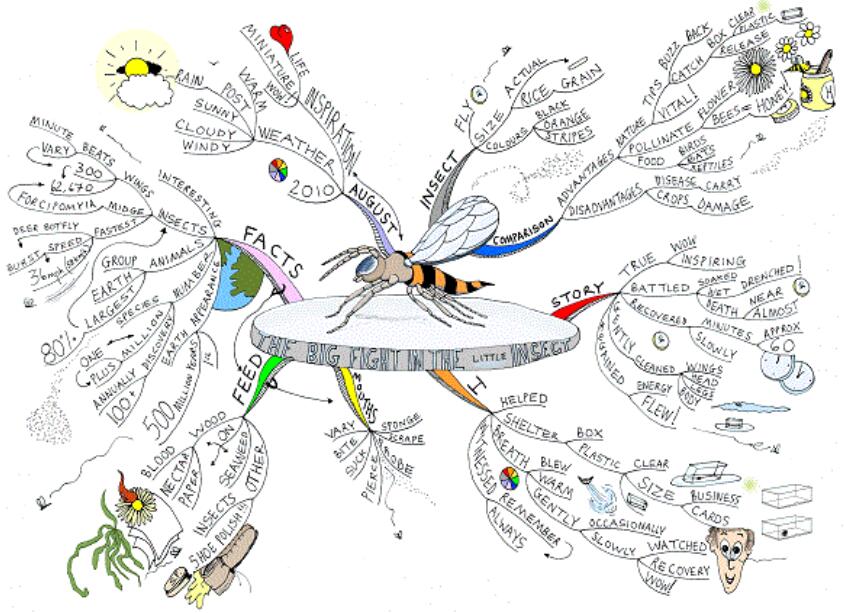 THE BIG FIGHT IN THE LITTLE INSECT
AUGUST
INSPIRATION
LIFE
MINIATURE
WOW!
WEATHER
WARM
POST
RAIN
SUNNY
CLOUDY
WINDY
2010
INSECT
FLY
SIZE
ACTUAL
RICE GRAIN
COLOURS
BLACK
ORANGE
STRIPES
COMPARISON
ADVANTAGES
NATURE
TIPS
BUZZ BACK
CATCH
BOX
CLEAR
PLASTIC
RELEASE
VITAL!
POLLINATE
FLOWER
BEES = HONEY!
H
FOOD
BIRDS
BATS
REPTILES
DISADVANTAGES
DISEASE CARRY
CROPS DAMAGE
STORY
TRUE
WOW
INSPIRING
BATTLED
SOAKED
WET
DRENCHED!
DEATH
NEAR
ALMOST
RECOVERED
MINUTES
APPROX
60
SLOWLY
CLEANED
WINGS
HEAD
LEGS
BODY
REGAINED
ENERGY
FLEW!
I
HELPED
SHELTER
BOX
PLASTIC
CLEAR
SIZE
BUSINESS
CARDS
BREATH
BLEW
WARM
GENTLY
OCCASIONALLY
WITNESSED
SLOWLY
WATCHED
RECOVERY
WOW!
REMEMBER
ALWAYS
MOUTHS
VARY
BITE
SUCK
PIERCE
SPONGE
SCRAPE
PROBE
FEED
ON
WOOD
BLOOD
NECTAR
PAPER
SEAWEED
OTHER
INSECTS
SHOE POLISH!!
FACTS
INTERESTING
INSECTS
WINGS
BEATS
MINUTE
VARY
300
62,670
MIDGE
FORCIPOMYIA
FASTEST
DEER BOTFLY
SPEED
BURST
36mph
ANIMALS
GROUP
EARTH
LARGEST
80%
NUMBER
SPECIES
MILLION
ONE
PLUS
DISCOVERY
ANNUALLY
100+
APPEARANCE
EARTH
500 MILLION YEARS